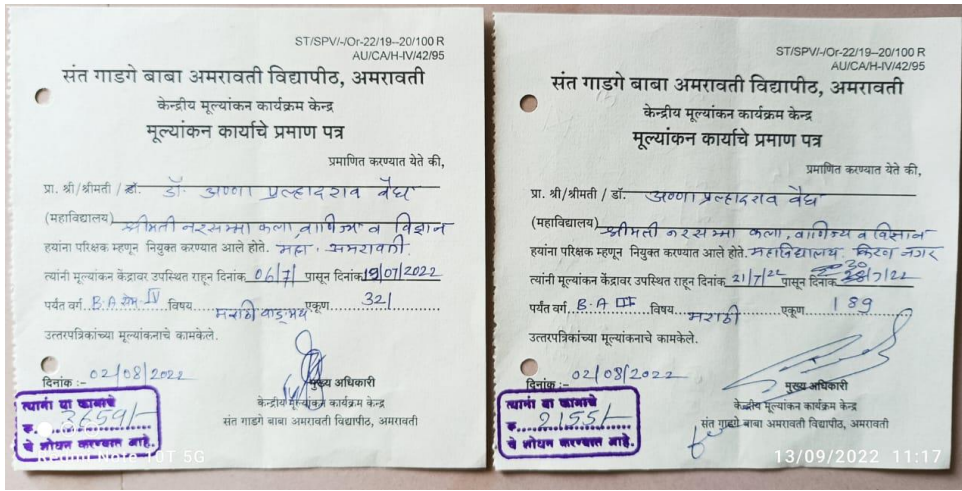 ST/SPV/-/Or-22/19--20/100 R
AU/CA/H-IV/42/95
संत गाडगे बाबा अमरावती विद्यापीठ, अमरावती
केन्द्रीय मूल्यांकन कार्यक्रम केन्द्र
मूल्यांकन कार्याचे प्रमाण पत्र
प्रमाणित करण्यात येते की,
प्रा. श्री/श्रीमती / डॉ. डॉ. अण्णा प्रल्हादराव वैद्य
(महाविद्यालय) श्रीमती नरसम्मा कला, वाणिज्य व विज्ञान
हयांना परिक्षक म्हणून नियुक्त करण्यात आले होते. महा. अमरावती.
त्यांनी मूल्यांकन केंद्रावर उपस्थित राहून दिनांक 06/7/ पासून दिनांक 19/07/2022
पर्यंत वर्ग. B.A सेम. IV विषय मराठी वाङ्मय एकूण 321
उत्तरपत्रिकांच्या मूल्यांकनाचे कामकेले.
दिनांक :- 02/08/2022
मुख्य अधिकारी
केन्द्रीय मूल्यांकन कार्यक्रम केन्द्र
संत गाडगे बाबा अमरावती विद्यापीठ, अमरावती
त्यांनी या कामाचे
रु. 3659/-
चे शोधन करण्यात आहे.
Redmi Note 10T 5G
ST/SPV/-/Or-22/19--20/100 R
AU/CA/H-IV/42/95
संत गाडगे बाबा अमरावती विद्यापीठ, अमरावती
केन्द्रीय मूल्यांकन कार्यक्रम केन्द्र
मूल्यांकन कार्याचे प्रमाण पत्र
प्रमाणित करण्यात येते की,
प्रा. श्री/श्रीमती / डॉ. अण्णा प्रल्हादराव वैद्य
(महाविद्यालय) श्रीमती नरसम्मा कला, वाणिज्य व विज्ञान
हयांना परिक्षक म्हणून नियुक्त करण्यात आले होते. महाविद्यालय किरण नगर
त्यांनी मूल्यांकन केंद्रावर उपस्थित राहून दिनांक 21/7/22 पासून दिनांक /7/22
पर्यंत वर्ग. B.A III विषय मराठी एकूण 189
उत्तरपत्रिकांच्या मूल्यांकनाचे कामकेले.
दिनांक :- 02/08/2022
मुख्य अधिकारी
केन्द्रीय मूल्यांकन कार्यक्रम केन्द्र
संत गाडगे बाबा अमरावती विद्यापीठ, अमरावती
त्यांनी या कामाचे
रु. 2155/-
चे शोधन करण्यात आहे.
13/09/2022 11:17